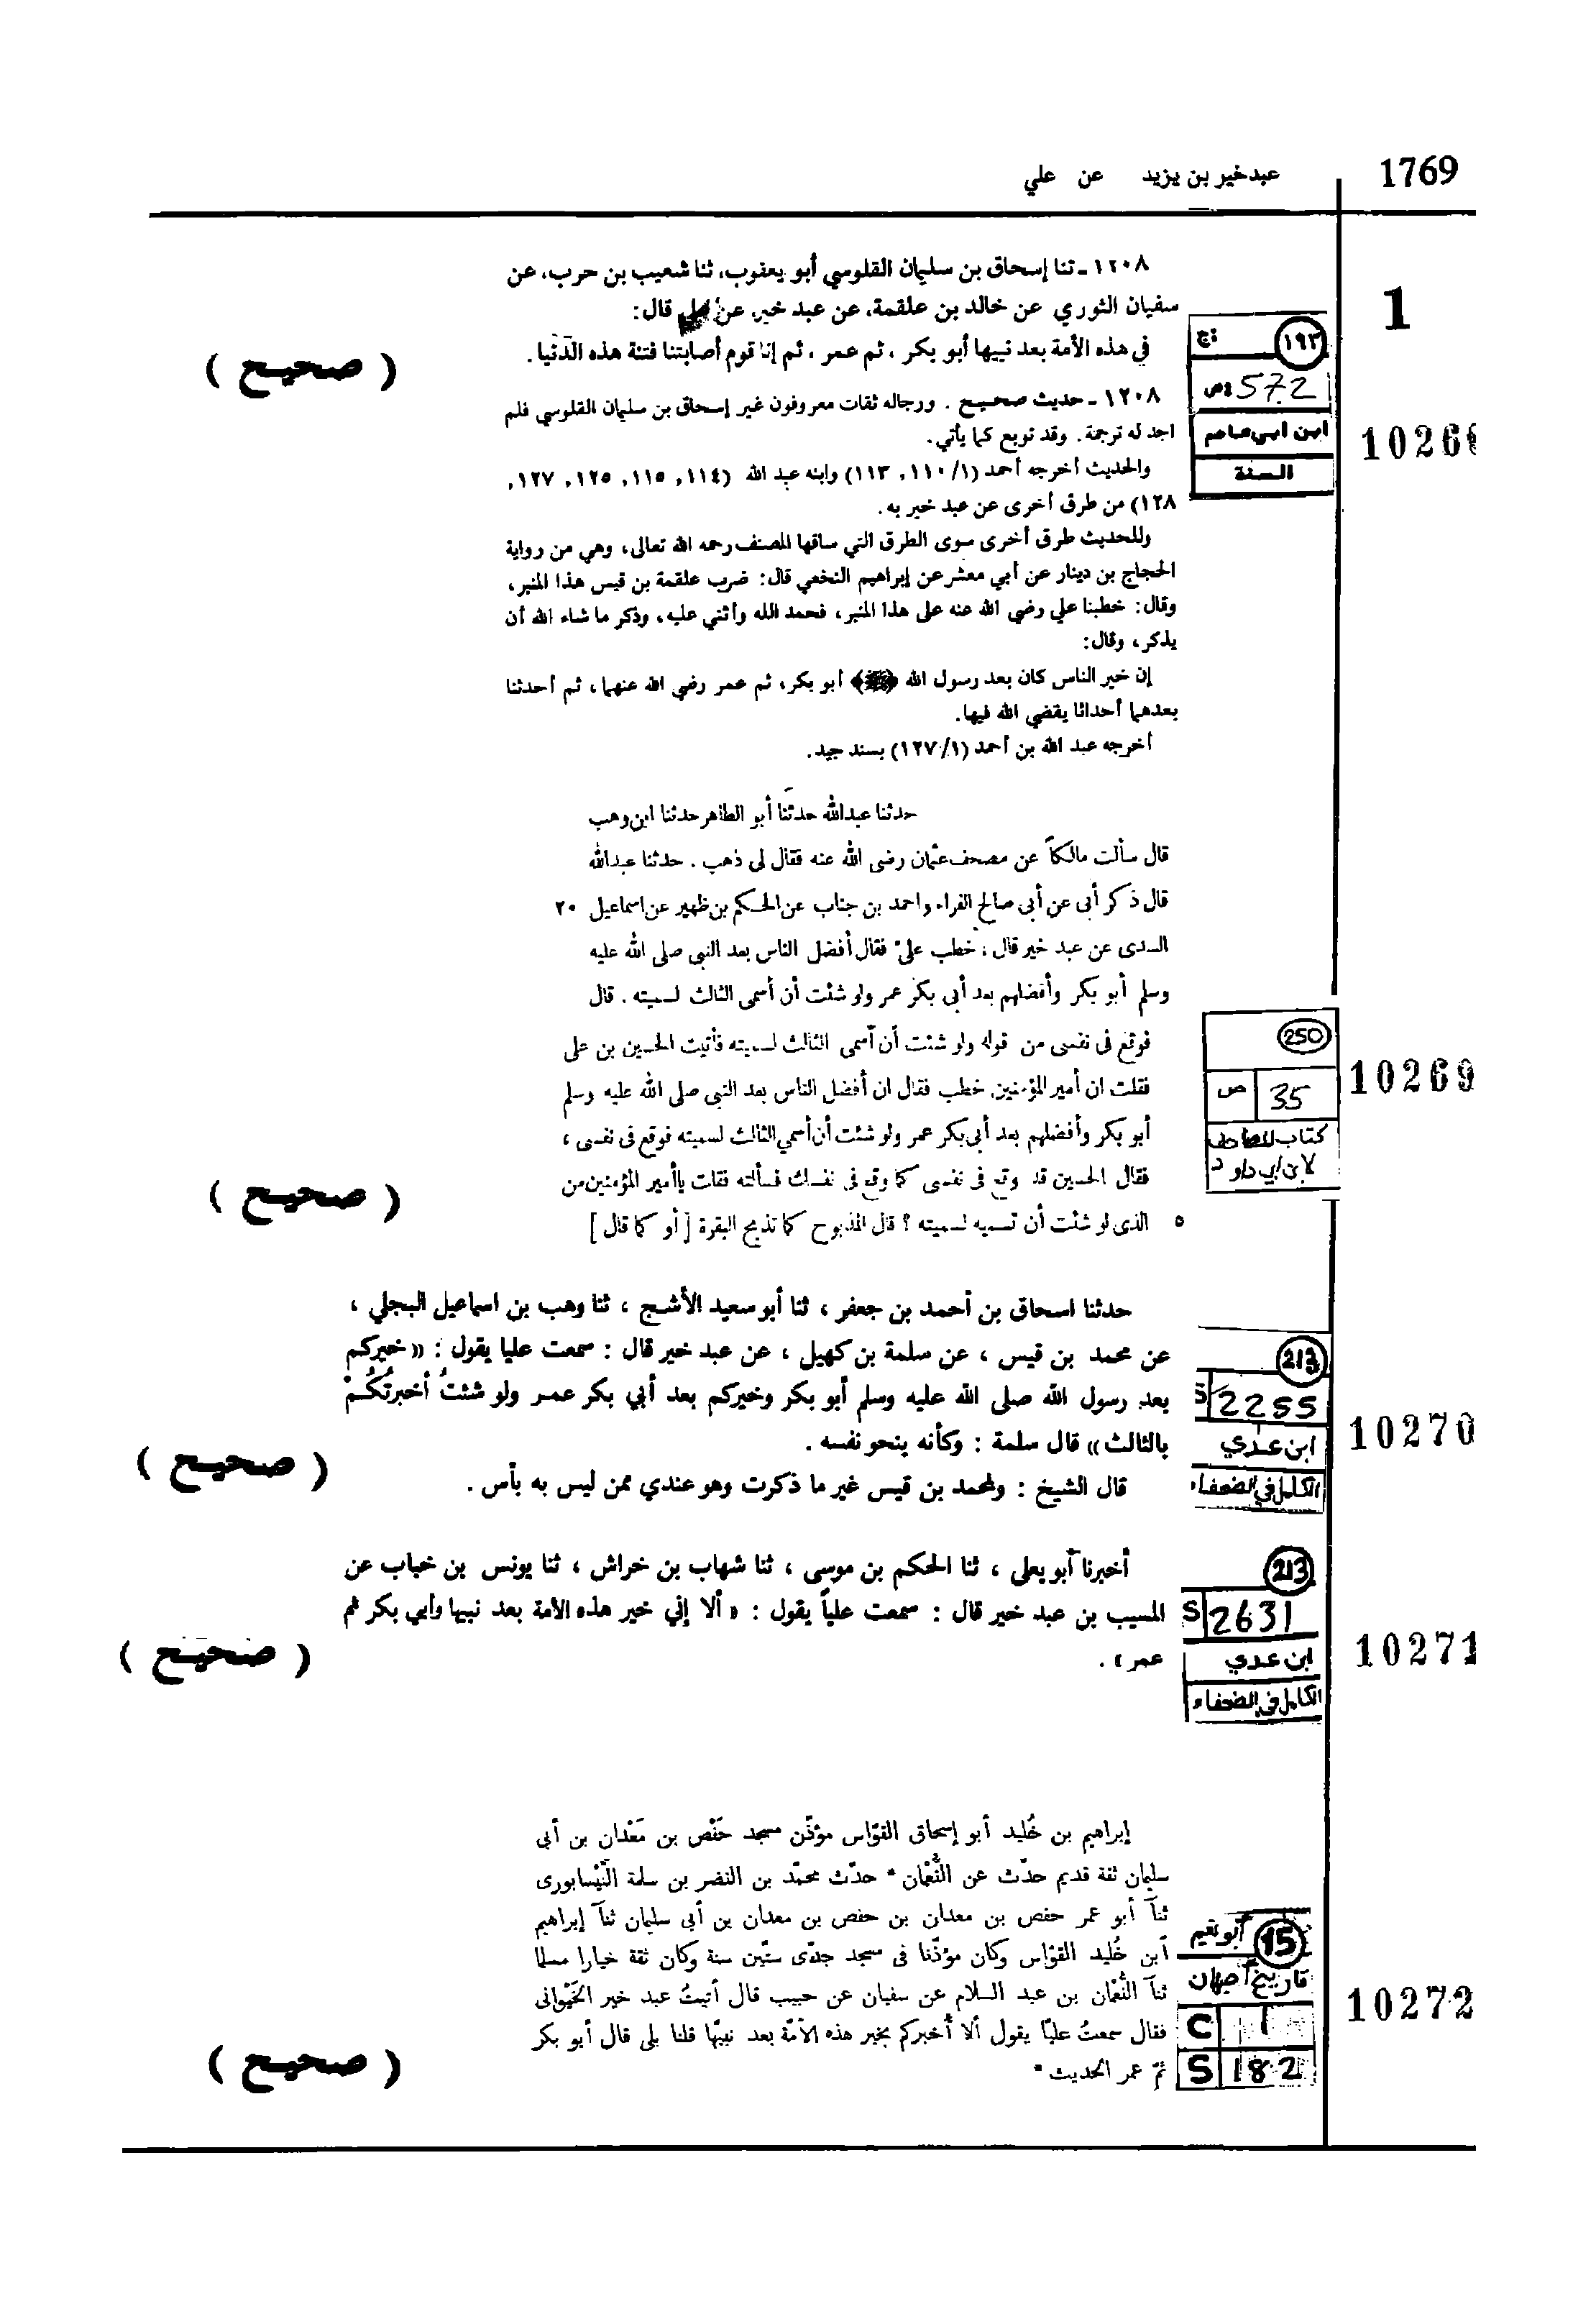 1769
عبدخير بن يزيد عن علي
١٢٠٨ - ثنا إسحاق بن سليمان القلوسي أبو يعقوب، ثنا شعيب بن حرب، عن
سفيان الثوري عن خالد بن علقمة، عن عبد خير، عن علي قال:
في هذه الأمة بعد نبيها أبو بكر، ثم عمر، ثم إنا قوم أصابتنا فتنة هذه الدنيا.
( صحيح )
1
١٩٣ ج
572 ص
ابن ابي عاصم
السنة
1026
١٢٠٨ - حديث صحيح . ورجاله ثقات معروفون غير إسحاق بن سليمان القلوسي فلم
اجد له ترجمة. وقد توبع كما يأتي.
والحديث أخرجه أحمد (١/ ١١٠, ١١٣) وابنه عبد الله (١١٤, ١١٥, ١٢٥, ١٢٧,
١٢٨) من طرق أخرى عن عبد خير به.
وللحديث طرق أخرى سوى الطرق التي ساقها المصنف رحمه الله تعالى، وهي من رواية
الحجاج بن دينار عن أبي معشر عن إبراهيم النخعي قال: ضرب علقمة بن قيس هذا المنبر،
وقال: خطبنا علي رضي الله عنه على هذا المنبر، فحمد الله وأثني عليه، وذكر ما شاء الله أن
يذكر، وقال:
إن خير الناس كان بعد رسول الله ﴿ﷺ﴾ أبو بكر، ثم عمر رضي الله عنهما، ثم أحدثنا
بعدهما أحداثا يقضي الله فيها.
أخرجه عبد الله بن أحمد (١/ ١٢٧) بسند جيد.
حدثنا عبدالله حدثنا أبو الطاهر حدثنا ابن وهب
قال سألت مالكاً عن مصحف عثمان رضى الله عنه فقال لى ذهب . حدثنا عبدالله
قال ذكر أبى عن أبى صالح الفراء واحمد بن جناب عن الحكم بن ظهير عن اسماعيل ٢٠
السدى عن عبد خير قال : خطب علىّ فقال أفضل الناس بعد النبى صلى الله عليه
وسلم أبو بكر وأفضلهم بعد أبى بكر عمر ولو شئت أن أسمى الثالث لسميته . قال
فوقع فى نفسى من قوله ولو شئت أن أسمى الثالث لسميته فأتيت الحسين بن على
فقلت ان أمير المؤمنين خطب فقال ان أفضل الناس بعد النبى صلى الله عليه وسلم
أبو بكر وأفضلهم بعد أبى بكر عمر ولو شئت أن أسمي الثالث لسميته فوقع فى نفسى ،
فقال الحسين قد وقع فى نفسى كما وقع فى نفسك فسألته فقلت ياأمير المؤمنين من
٥ الذى لو شئت أن تسميه لسميته ؟ قال المذبوح كما تذبح البقرة [ أو كما قال ]
( صحيح )
250
35 ص
كتاب المصاحف
لابن ابي داود
10269
حدثنا اسحاق بن أحمد بن جعفر ، ثنا أبو سعيد الأشج ، ثنا وهب بن اسماعيل البجلي ،
عن محمد بن قيس ، عن سلمة بن كهيل ، عن عبد خير قال : سمعت عليا يقول : « خيركم
بعد رسول الله صلى الله عليه وسلم أبو بكر وخيركم بعد أبي بكر عمر ولو شئتُ أخبرتُكُمْ
بالثالث » قال سلمة : وكأنه ينحو نفسه .
قال الشيخ : ولمحمد بن قيس غير ما ذكرت وهو عندي ممن ليس به بأس .
( صحيح )
213
S 2255
ابن عدي
الكامل في الضعفاء
10270
أخبرنا أبو يعلى ، ثنا الحكم بن موسى ، ثنا شهاب بن خراش ، ثنا يونس بن خباب عن
المسيب بن عبد خير قال : سمعت علياً يقول : « ألا إني خير هذه الأمة بعد نبيها وأبي بكر ثم
عمر » .
( صحيح )
213
S 2631
ابن عدي
الكامل في الضعفاء
10271
إبراهيم بن خُليد أبو إسحاق القوّاس مؤذّن مسجد حَفْص بن مَعْدان بن أبى
سليمان ثقة قديم حدّث عن النُّعْمان * حدّث محمّد بن النضر بن سلمة النَّيْسابورى
ثنآ أبو عمر حفص بن معدان بن حفص بن معدان بن أبى سليمان ثنآ إبراهيم
أبن خُليد القوّاس وكان مؤذّنا فى مسجد جدّى ستّين سنة وكان ثقة خيارا مسلما
ثنآ النُّعْمان بن عبد السلام عن سفيان عن حبيب قال أتيتُ عبد خير الخَيْوانى
فقال سمعتُ عليّا يقول ألا أخبركم بخير هذه الأمّة بعد نبيّها قلنا بلى قال أبو بكر
ثمّ عمر الحديث *
( صحيح )
15 أبو نعيم
تاريخ أصبهان
C 1
S 182
10272